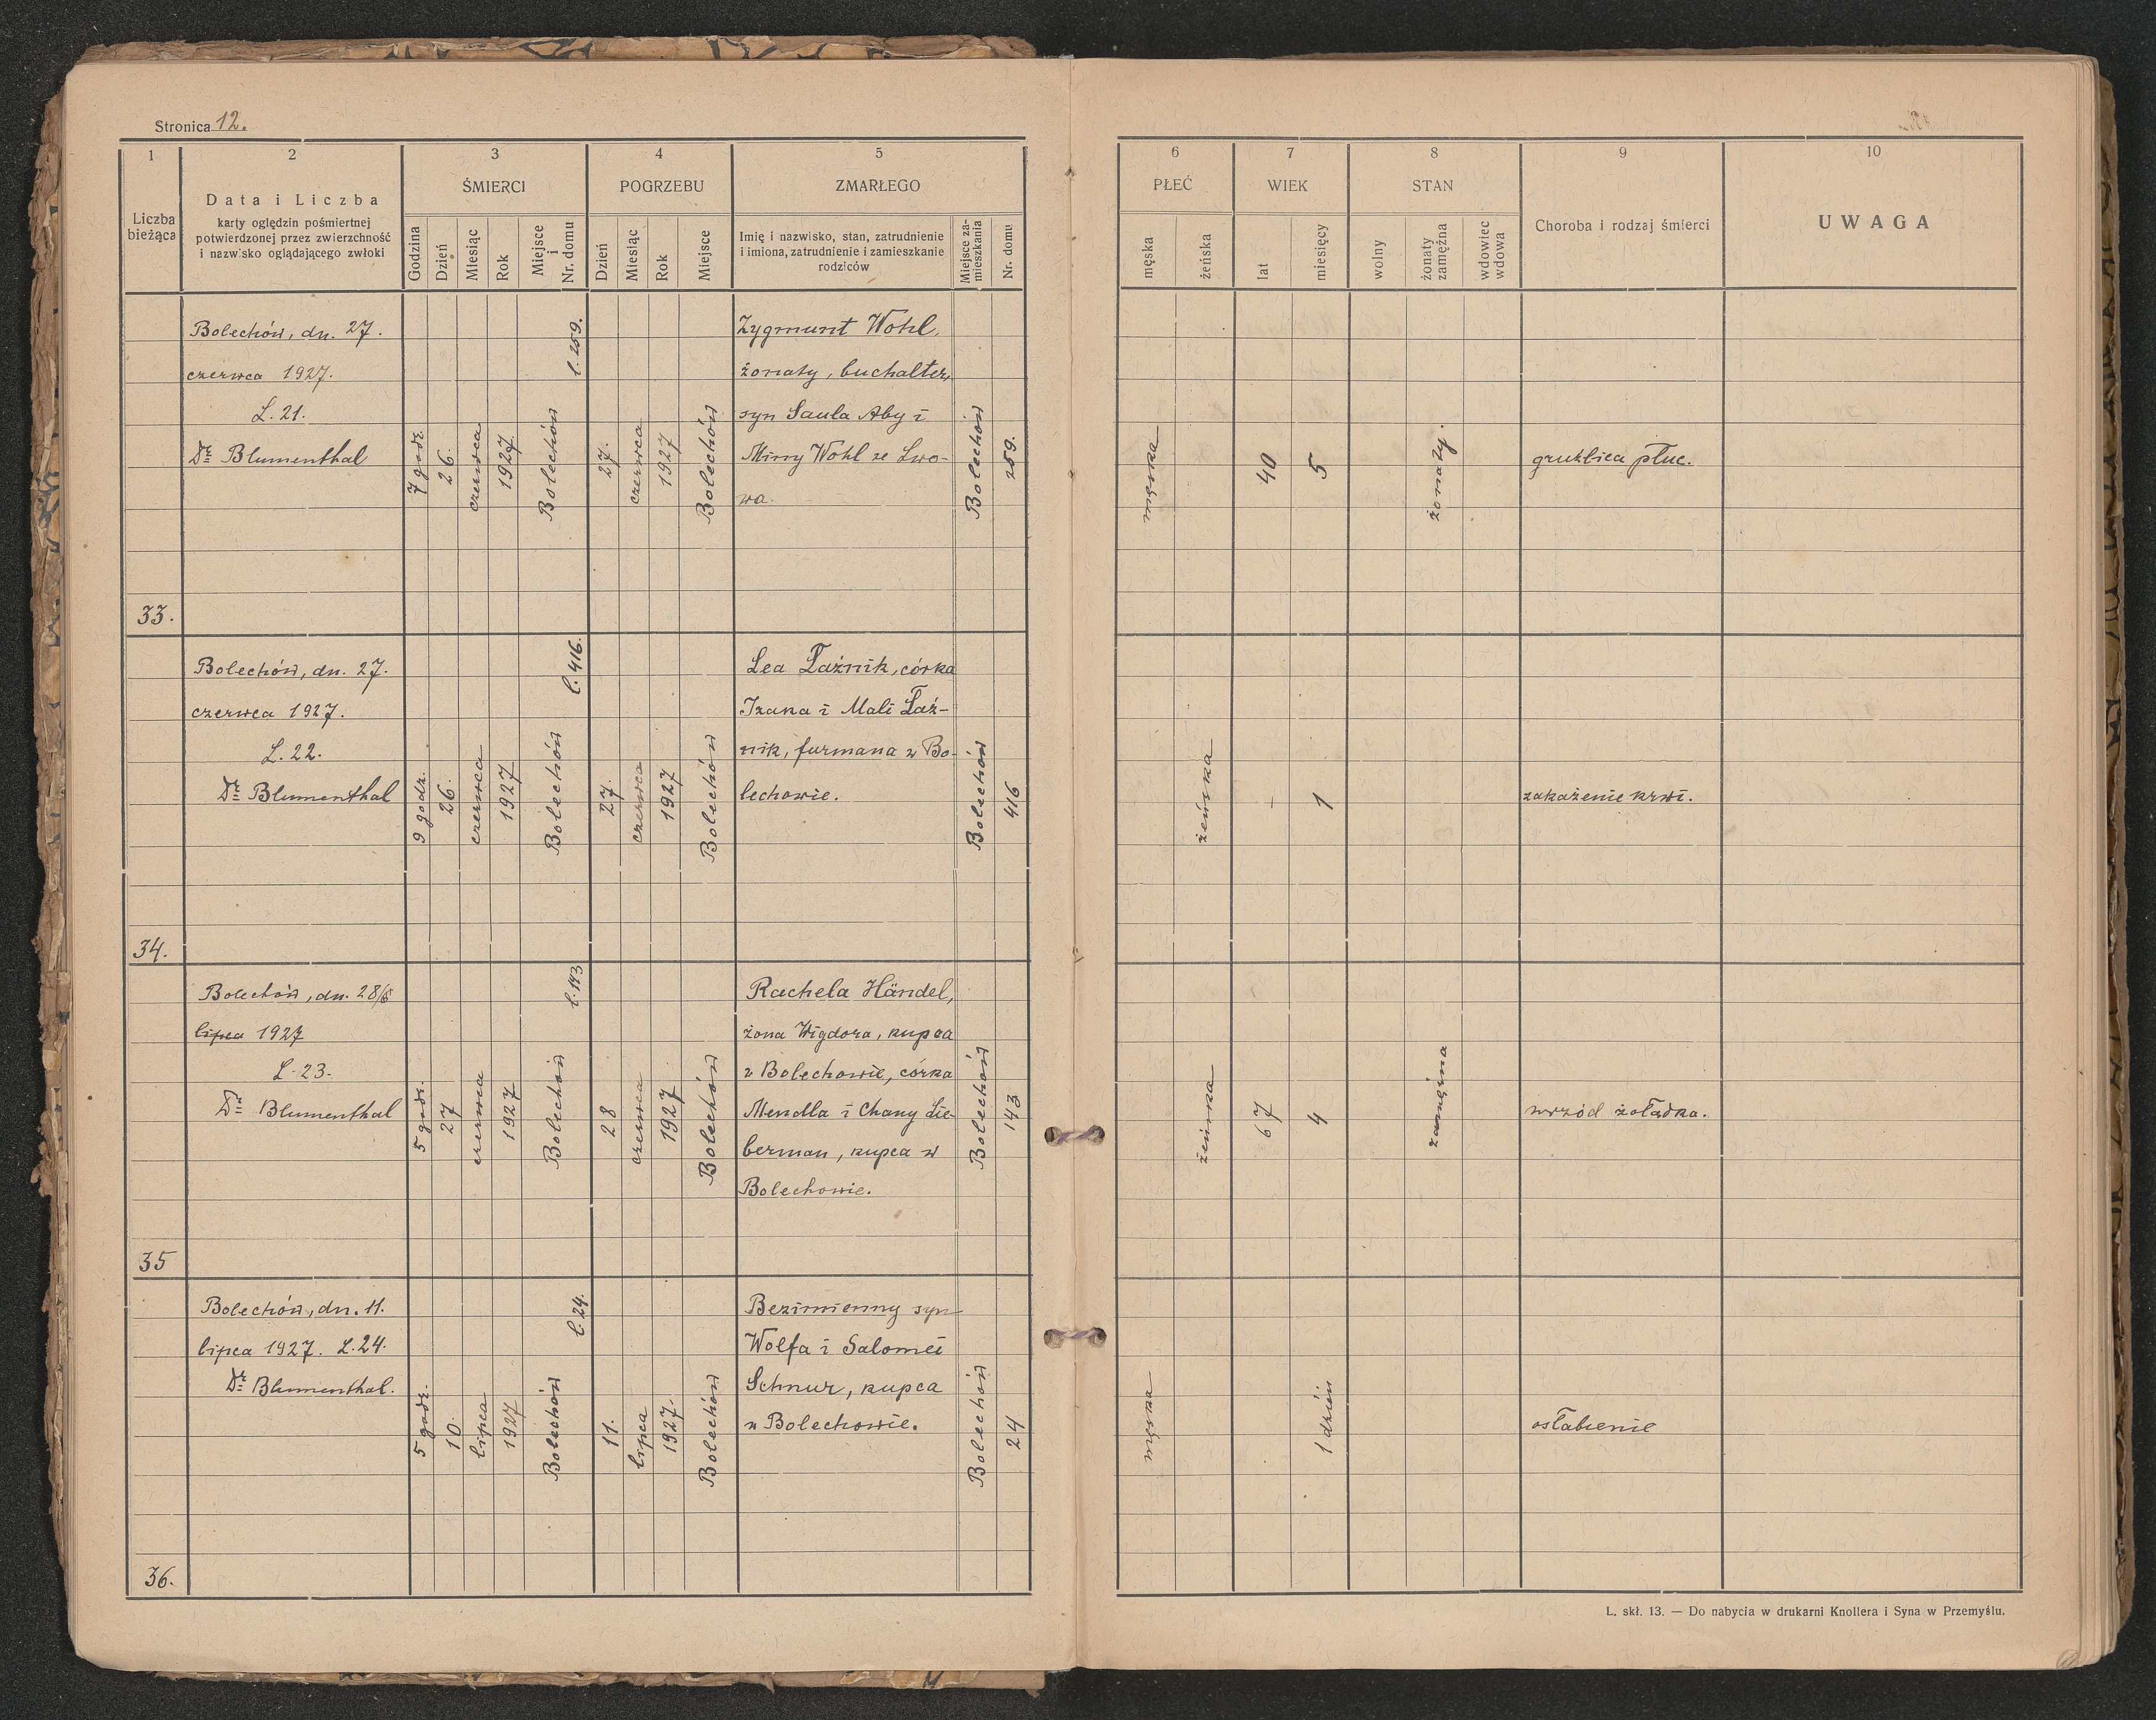 Stronica 12.
1
2
3
4
5
Liczba
bieżąca
Data i Liczba
karty oględzin pośmiertnej
potwierdzonej przez zwierzchność
i nazwisko oglądającego zwłoki
ŚMIERCI
Godzina
Dzień
Miesiąc
Rok
Miejsce
i
Nr. domu
POGRZEBU
Dzień
Miesiąc
Rok
Miejsce
ZMARŁEGO
Imię i nazwisko, stan, zatrudnienie
i imiona, zatrudnienie i zamieszkanie
rodziców
Miejsce za-
mieszkania
Nr. domu
6
7
8
9
10
PŁEĆ
męska
żeńska
WIEK
lat
miesięcy
STAN
wolny
żonaty
zamężna
wdowiec
wdowa
Choroba i rodzaj śmierci
UWAGA
33.
Bolechów, dn. 27.
czerwca 1927.
L. 21.
Dr Blumenthal
7 godz.
26.
czerwca
1927
Bolechów
l. 259.
27.
czerwca
1927
Bolechów
Zygmunt Wohl,
żonaty, buchalter,
syn Saula Aby i
Miny Wohl ze Lwo-
wa.
Bolechów
259.
męska
40
5
żonaty.
gruźlica płuc.
34.
Bolechów, dn. 27.
czerwca 1927.
L. 22.
Dr Blumenthal
9 godz.
26
czerwca
1927
Bolechów
l. 416.
27.
czerwca
1927
Bolechów
Lea Łaźnik, córka
Izaka i Mali Łaź-
nik, furmana w Bo-
lechowie.
Bolechów
416
żeńska
-
1
zakażenie krwi.
35
Bolechów, dn. 28/6
lipca 1927
L. 23.
Dr Blumenthal
5 godz.
27
czerwca
1927
Bolechów
l. 143
28
czerwca
1927
Bolechów
Rachela Händel,
żona Wigdora, kupca
w Bolechowie, córka
Mendla i Chany Lie-
berman, kupca w
Bolechowie.
Bolechów
143
żeńska
67
4
zamężna
wrzód żołądka.
36.
Bolechów, dn. 11.
lipca 1927. L. 24.
Dr Blumenthal.
5 godz.
10.
lipca
1927
Bolechów
l. 24.
11.
lipca
1927.
Bolechów
Bezimienny syn
Wolfa i Salomei
Schnur, kupca
w Bolechowie.
Bolechów
24
męska
1 dzień
osłabienie
L. skł. 13. — Do nabycia w drukarni Knollera i Syna w Przemyślu.